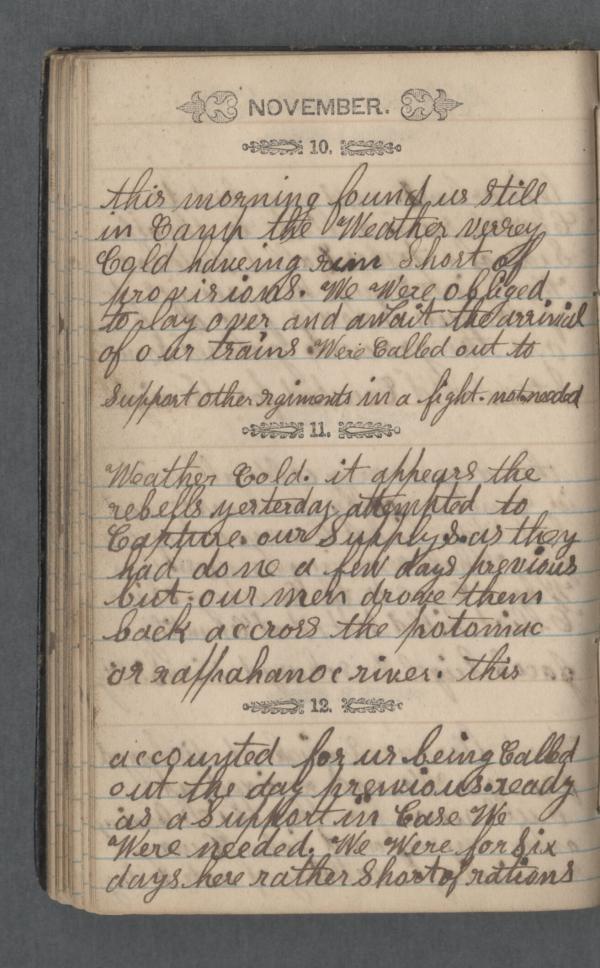 NOVEMBER.
10.
this morning found us still
in Camp the Weather verrey
Cold haveing run Short of
provisions. We Were obliged
to lay over and await the arrival
of our trains. Were Called out to
Support other rgiments in a fight. not needed
11.
Weather Cold. it appears the
rebells yesterday attempted to
Capture. our Supplys. as they
had done a few days previous
but. our men drove them
back accross the potomac
or rappahanoc river. this
12.
accounted for us being Called
out the day previous. ready
as a Support in Case We
Were needed. We Were for Six
days here rather Short of rations